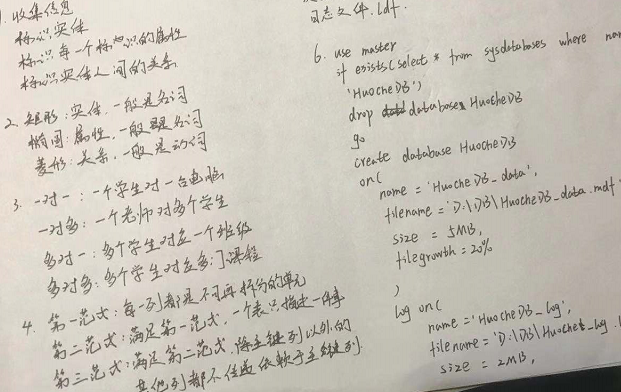 收集信息
标识实体
标识每一个标识的属性
标识实体之间的关系
2. 矩形:实体,一般是名词
椭圆:属性,一般是名词
菱形:关系,一般是动词
3. 一对一:一个学生对一台电脑
一对多:一个老师对多个学生
多对一:多个学生对应一个班级
多对多:多个学生对应多门课程
4. 第一范式:每一列都是不可再拆分的单元
第二范式:满足第一范式,一个表只描述一件事
第三范式:满足第二范式,除主键列以外的
其他列都不传递依赖于主键列.
日志文件.ldf.
6. use master
if esists(select * from sysdatabases where
'HuocheDB')
drop database HuocheDB
go
create database HuocheDB
on(
name = 'HuocheDB_data',
filename = 'D:\DB\HuocheDB_data.mdf
size = 5MB,
filegrowth = 20%
)
log on(
name = 'HuocheDB_log',
filename = 'D:\DB\
size = 2MB,